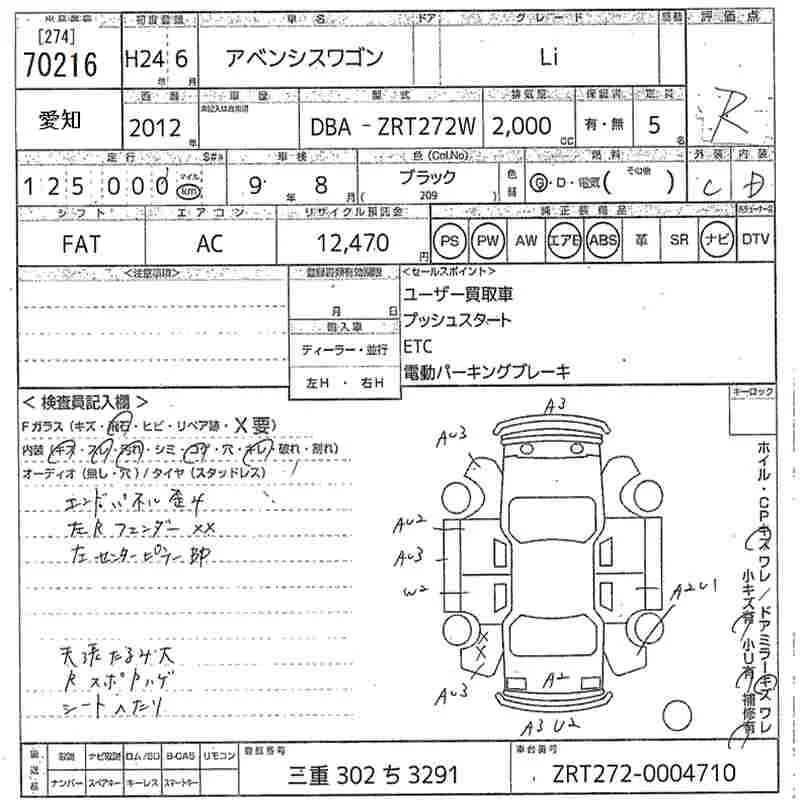 [274]
70216
初度登録
H24 年 6 月
車名
アベンシスワゴン
ドア
グレード
Li
評価点
R
愛知
西暦
2012 年
車歴
型式
DBA - ZRT272W
排気量
2,000 cc
保証書
有・無
定員
5 名
走行
125000 マイル km
車検
9 年 8 月
色 (Col.No)
ブラック
( 209 )
色替
燃料
G・D・電気 ( その他 )
外装
C
内装
D
シフト
FAT
エアコン
AC
リサイクル預託金
12,470 円
純正装備品
PS PW AW エアB ABS 革 SR ナビ DTV
<注意事項>
月 日
輸入車
ディーラー・並行
左H・右H
<セールスポイント>
ユーザー買取車
プッシュスタート
ETC
電動パーキングブレーキ
キーロック
< 検査員記入欄 >
Fガラス (キズ・飛石・ヒビ・リペア跡・X要)
内装 (キズ・スレ・汚れ・シミ・コゲ・穴・キレ・破れ・割れ)
オーディオ (無し・穴) / タイヤ (スタッドレス)
エンドパネル歪み
左Rフェンダー XX
左センターピラー
天張たるみ大
シートへたり
A3
AU3
AU2
AU3
W2
A2U1
X
X
A2
AU3
A3 U2
ホイル・CPキズ ワレ / ドアミラーキズ ワレ
小キズ有 小U有 補修有
取説 ナビ取説 ロム/SD B-CAS リモコン
ナンバー スペアキー キーレス スマートキー
登録番号
三重 302 ち 3291
車台番号
ZRT272-0004710